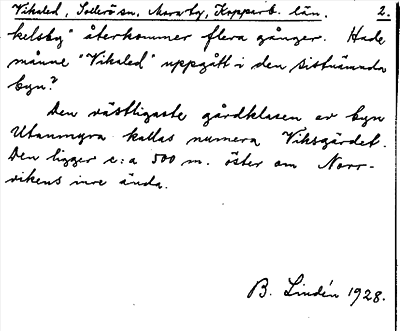 Vikaled, Sollerö sn, Mora by, Kopparb. län. 2.
kelsby" återkommer flera gånger. Hade
månne "Vikaled" uppgått i den sistnämnda
byn?
Den västligaste gårdklasen av byn
Utanmyra kallas numera Viksgärdet.
Den ligger c:a 500 m. öster om Norr-
vikens inre ända.
B. Lindén 1928.